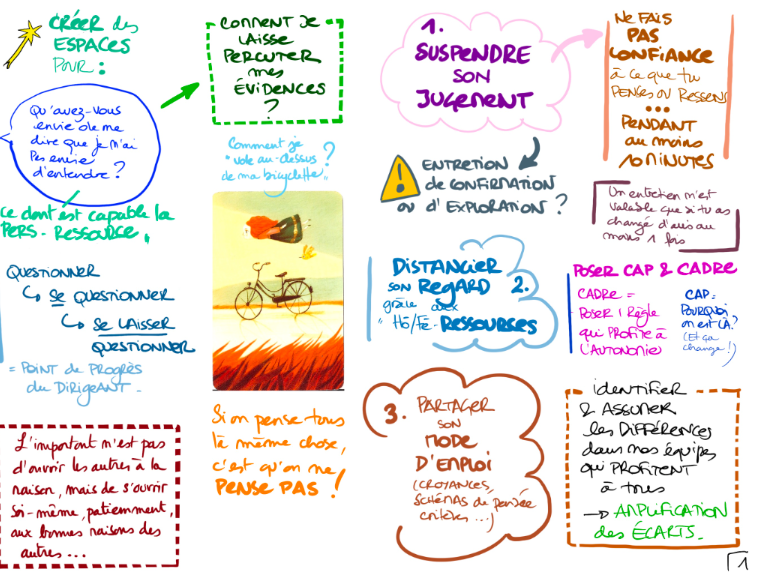 CRÉER des
ESPACES
POUR :
Qu'avez-vous
envie de me
dire que je n'ai
pas envie
d'entendre ?
Ce dont est capable la
PERS-RESSOURCE,
QUESTIONNER
↳ SE QUESTIONNER
↳ SE LAISSER
QUESTIONNER
= POINT de PROGRÈS
du DIRIGEANT -
L'important n'est pas
d'ouvrir les autres à la
raison, mais de s'ouvrir
soi-même, patiemment,
aux bonnes raisons des
autres ...
COMMENT JE
LAISSE
PERCUTER
mes
ÉVIDENCES
?
Comment je
"vole au-dessus
de ma bicyclette" ?
Si on pense tous
la même chose,
c'est qu'on ne
PENSE PAS !
1.
SUSPENDRE
SON
JUGEMENT
ENTRETIEN
de CONFIRMATION
ou d'EXPLORATION ?
DISTANCIER
son REGARD 2.
grâce aux
"Hô/Fê-RESSOURCES
3. PARTAGER
SON
MODE
D'EMPLOI
(CROYANCES,
SCHÉMAS de pensée
critères ...)
NE FAIS
PAS
CONFIANCE
à ce que tu
PENSES OU RESSENS
...
PENDANT
au moins
10 MINUTES
Un entretien n'est
valable que si tu as
changé d'avis au
moins 1 fois
POSER CAP & CADRE
CADRE =
POSER 1 Règle
qui PROFITE à
l'AUTONOMIE
CAP =
POURQUOI
on est LÀ ?
(Et ça
change !)
identifier
& ASSUMER
les DIFFÉRENCES
dans nos équipes
qui PROFITENT
à tous
→ AMPLIFICATION
des ÉCARTS.
1